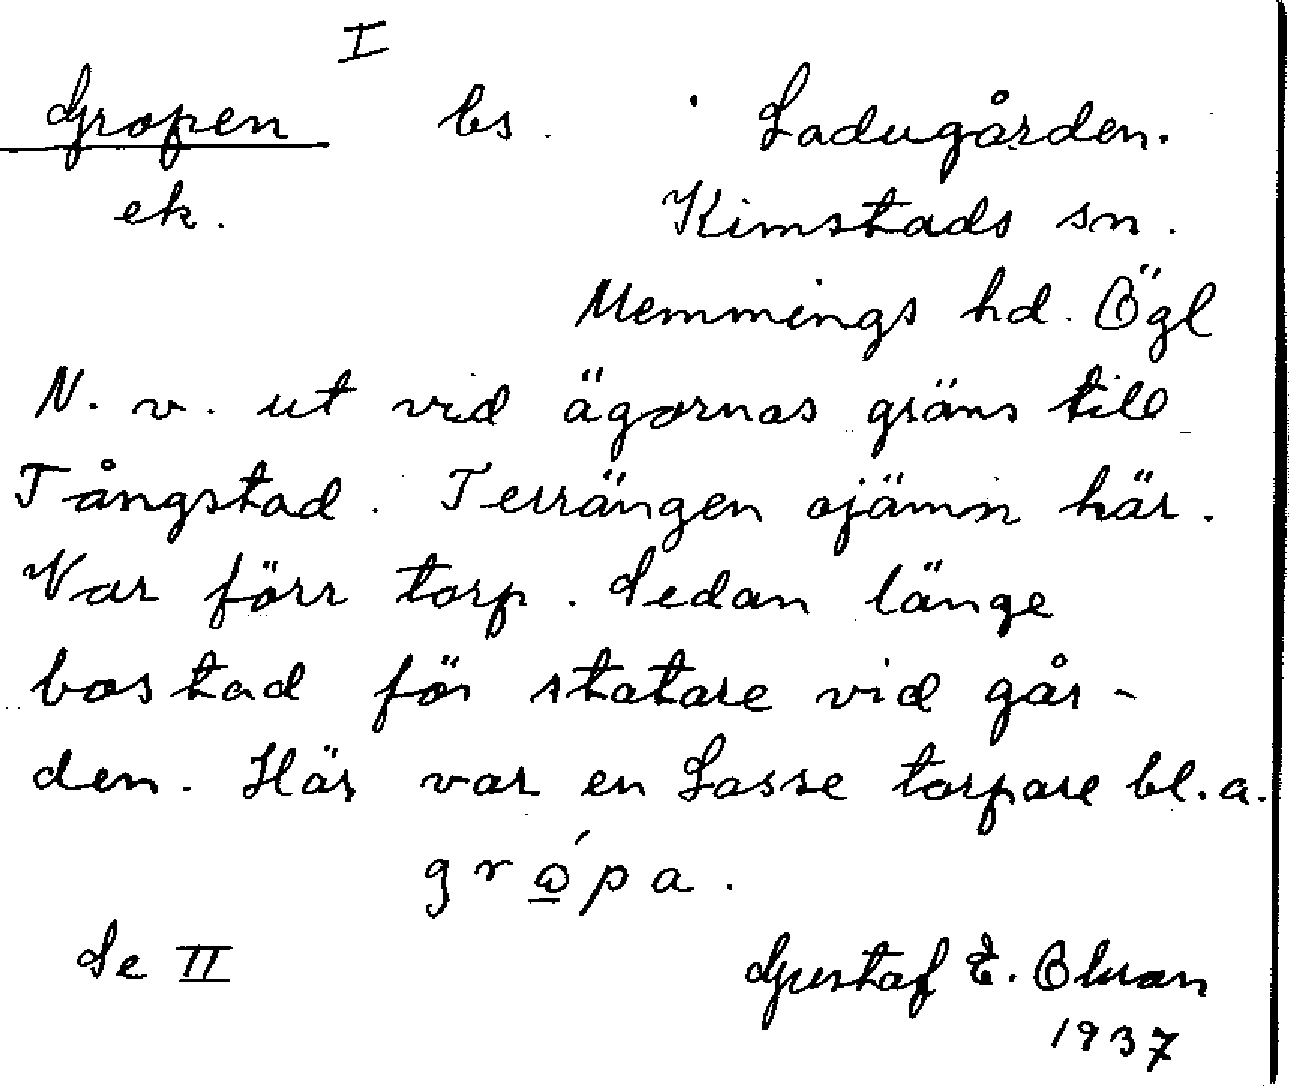 I
Gropen bs. Ladugården.
ek. Kimstads sn.
Memmings hd. Ögl
N. v. ut vid ägornas gräns till
Tångstad. Terrängen ojämn här.
Var förr torp. Sedan länge
bostad för statare vid går-
den. Här var en Lasse torpare bl. a.
grò̱́pa.
Se II Gustaf E.
1937